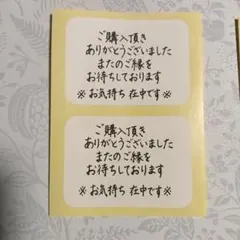 ご購入頂き
ありがとうございました
またのご縁を
お待ちしております
※お気持ち在中です※
ご購入頂き
ありがとうございました
またのご縁を
お待ちしております
※お気持ち在中です※